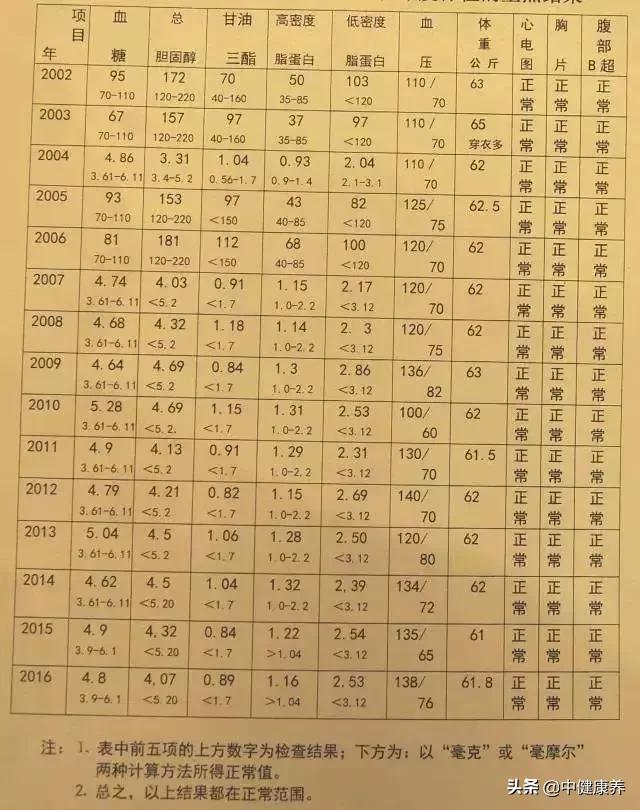 项 血 总 甘油 高密度 低密度 血 体 心 胸 腹
目 重 电 部
年 糖 胆固醇 三酯 脂蛋白 脂蛋白 压 公斤 图 片 B超
2002 95 172 70 50 103 110/ 63 正 正 正
70-110 120-220 40-160 35-85 <120 70 常 常 常
2003 67 157 97 37 97 110/ 65 正 正 正
70-110 120-220 40-160 35-85 <120 70 穿衣多 常 常 常
2004 4.86 3.31 1.04 0.93 2.04 110/ 62 正 正 正
3.61-6.11 3.4-5.2 0.56-1.7 0.9-1.4 2.1-3.1 70 常 常 常
2005 93 153 97 43 82 125/ 62.5 正 正 正
70-110 120-220 <150 40-85 <120 75 常 常 常
2006 81 181 112 68 100 120/ 62 正 正 正
70-110 120-220 <150 40-85 <120 70 常 常 常
2007 4.74 4.03 0.91 1.15 2.17 120/ 62 正 正 正
3.61-6.11 <5.2 <1.7 1.0-2.2 <3.12 70 常 常 常
2008 4.68 4.32 1.18 1.14 2.3 120/ 62 正 正 正
3.61-6.11 <5.2 <1.7 1.0-2.2 <3.12 75 常 常 常
2009 4.64 4.69 0.84 1.3 2.86 136/ 63 正 正 正
3.61-6.11 <5.2 <1.7 1.0-2.2 <3.12 82 常 常 常
2010 5.28 4.69 1.15 1.31 2.53 100/ 62 正 正 正
3.61-6.11 <5.2. <1.7 1.0-2.2 <3.12 60 常 常 常
2011 4.9 4.13 0.91 1.29 2.31 130/ 61.5 正 正 正
3.61-6.11 <5.2 <1.7 1.0-2.2 <3.12 70 常 常 常
2012 4.79 4.21 0.82 1.15 2.69 140/ 62 正 正 正
3.61-6.11 <5.2 <1.7 1.0-2.2 <3.12 70 常 常 常
2013 5.04 4.5 1.06 1.28 2.50 120/ 62 正 正 正
3.61-6.11 <5.2 <1.7 1.0-2.2 <3.12 80 常 常 常
2014 4.62 4.5 1.04 1.32 2,39 134/ 62 正 正 正
3.61-6.11 <5.20 <1.7 1.0-2.2 <3.12 72 常 常 常
2015 4.9 4,32 0.84 1.22 2.54 135/ 61 正 正 正
3.9-6.1 <5.20 <1.7 >1.04 <3.12 65 常 常 常
2016 4.8 4,07 0.89 1.16 2.53 138/ 61.8 正 正 正
3.9-6.1 <5.20 <1.7 >1.04 <3.12 76 常 常 常
注：1. 表中前五项的上方数字为检查结果；下方为：以“毫克”或“毫摩尔”
两种计算方法所得正常值。
2. 总之，以上结果都在正常范围。
头条 @中健康养